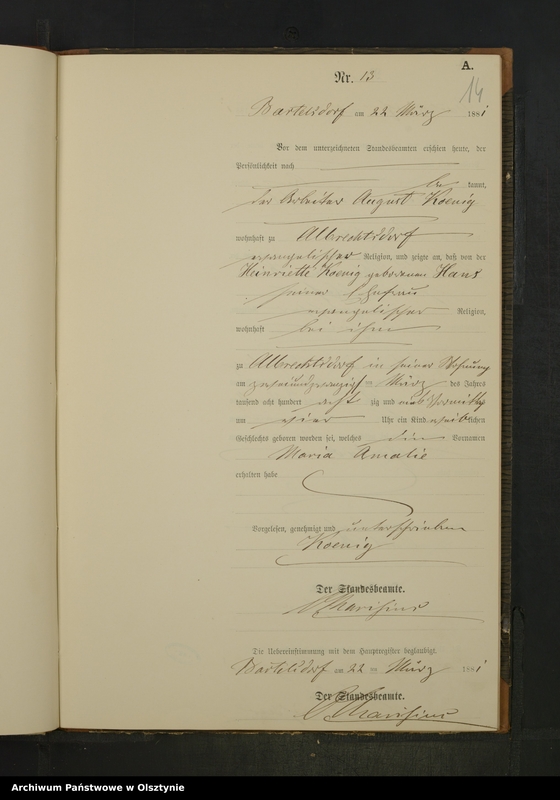 A.
Nr. 13
14
Bartelsdorf am 22 März 1881
Vor dem unterzeichneten Standesbeamten erschien heute, der
Persönlichkeit nach
be kannt,
der Arbeiter August Koenig
wohnhaft zu Albrechtsdorf
evangelischer Religion, und zeigte an, daß von der
Heinriette Koenig geborenen Hans
seiner Ehefrau
evangelischer Religion,
wohnhaft bei ihm
zu Albrechtsdorf in seiner Wohnung
am März des Jahres
tausend acht hundert acht zig und eins Vormittag
um vier Uhr ein Kind weib lichen
Geschlechts geboren worden sei, welches die Vornamen
Maria Amalie
erhalten habe
Vorgelesen, genehmigt und unterschrieben
Koenig
Der Standesbeamte.
Die Uebereinstimmung mit dem Hauptregister beglaubigt.
Bartelsdorf am 22 ten März 1881
Der Standesbeamte.
Archiwum Państwowe w Olsztynie